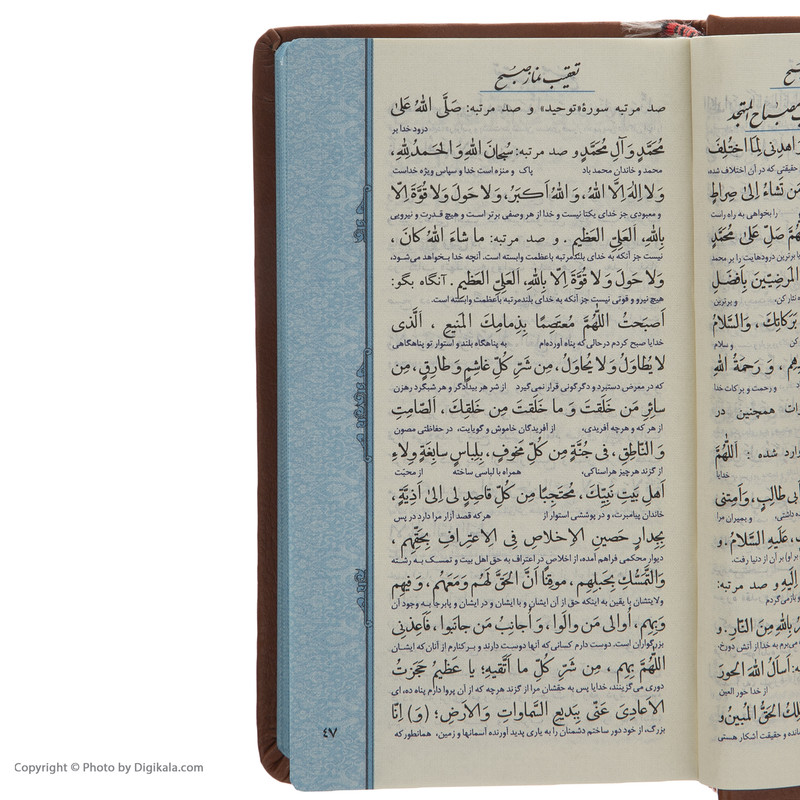 تعقیب نماز صبح
صد مرتبه سورۀ «توحید» و صد مرتبه: صَلَّی اللهُ عَلیٰ
درود خدا بر
مُحَمَّدٍ وَ آلِ مُحَمَّدٍ و صد مرتبه: سُبحانَ اللهِ وَ الحَمدُ لِلّهِ،
محمد و خاندان محمد باد پاک و منزه است خدا و سپاس ویژه خداست
وَ لا اِلٰهَ اِلَّا اللهُ، وَ اللهُ اَکبَرُ، وَ لا حَولَ وَ لا قُوَّةَ اِلّا
و معبودی جز خدای یکتا نیست و خدا از هر وصفی برتر است و هیچ قدرت و نیرویی
بِاللهِ، اَلعَلِیِّ العَظیمِ. و صد مرتبه: ما شاءَ اللهُ کانَ،
نیست جز آنکه به خدای بلندمرتبه باعظمت وابسته است. آنچه خدا بخواهد می‌شود،
وَ لا حَولَ وَ لا قُوَّةَ اِلّا بِاللهِ، اَلعَلِیِّ العَظیمِ. آنگاه بگو:
هیچ نیرو و قوتی نیست جز آنکه به خدای بلندمرتبه باعظمت وابسته است.
اَصبَحتُ اللّهُمَّ مُعتَصِمًا بِذِمامِکَ المَنیعِ، اَلَّذی
خدایا صبح کردم درحالی‌که پناه آورده‌ام به پناهگاه بلند و استوار تو پناهگاهی
لا یُطاوَلُ وَ لا یُحاوَلُ، مِن شَرِّ کُلِّ غاشِمٍ وَ طارِقٍ، مِن
که در معرض دستبرد و دگرگونی قرار نمی‌گیرد از شر هر بیدادگر و هر شبگرد رهزن
سائِرِ مَن خَلَقتَ وَ ما خَلَقتَ مِن خَلقِکَ، اَلصّامِتِ
از هر که و هرچه آفریدی، از آفریدگان خاموش و گویایت، در حفاظتی مصون
وَ النّاطِقِ، فی جُنَّةٍ مِن کُلِّ مَخوفٍ، بِلِباسٍ سابِغَةٍ وِلاءِ
از گزند هرچیز هراسناکی، همراه با لباسی ساخته از محبّت
اَهلِ بَیتِ نَبِیِّکَ، مُحتَجِبًا مِن کُلِّ قاصِدٍ لی اِلیٰ اَذِیَّةٍ،
خاندان پیامبرت، و در پوششی استوار از هرکه قصد آزار مرا دارد در پس
بِجِدارٍ حَصینِ الاِخلاصِ فِی الاِعتِرافِ بِحَقِّهِم،
دیوار محکمی فراهم آمده، از اخلاص در اعتراف به حق اهل بیت و تمسک به رشته
وَ التَّمَسُّکِ بِحَبلِهِم، موقِنًا اَنَّ الحَقَّ لَهُم وَ مَعَهُم، وَ فیهِم
ولایتشان با یقین به اینکه حق از آن ایشان و با ایشان و در ایشان و پابرجا به وجود آن
وَ بِهِم، اُوالی مَن والَوا، وَ اُجانِبُ مَن جانَبوا، فَاَعِذنی
بزرگواران است، دوست دارم کسانی که آنها دوست دارند و برکنارم از آنان که ایشان
اللّهُمَّ بِهِم، مِن شَرِّ کُلِّ ما اَتَّقیهِ؛ یا عَظیمُ حَجَزتُ
دوری می‌گزینند، خدایا پس به حقشان مرا از گزند هرچه که از آن پروا دارم پناه ده، ای
الاَعادِیَ عَنّی بِبَدیعِ السَّماواتِ وَ الاَرضِ؛ (وَ) اِنّا
بزرگ، از خود دور ساختم دشمنان را به یاری پدید آورنده آسمانها و زمین، همانطور که
٤٧
Copyright © Photo by Digikala.com